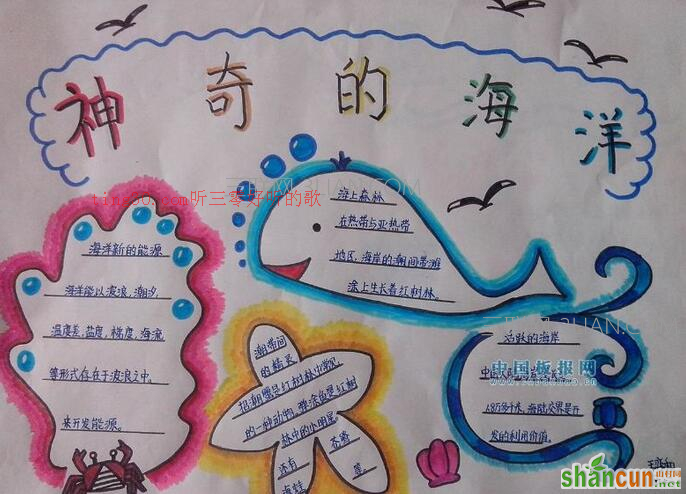 神奇的海洋
海洋新的能源
海洋能以波浪、潮汐、
温度差、盐度、梯度、海流
等形式存在于波浪之中。
来开发能源。
海上森林
在热带与亚热带
地区,海岸的潮间带滩
涂上生长着红树林。
潮带间
的精灵
招潮蟹是红树林中常见
的一种动物,弹涂鱼是红树
林中的小明星
还有
海蛙
等。
活跃的海岸
中国
发的利用价值。
听三零好听的歌
中国板报网
shancun
.net